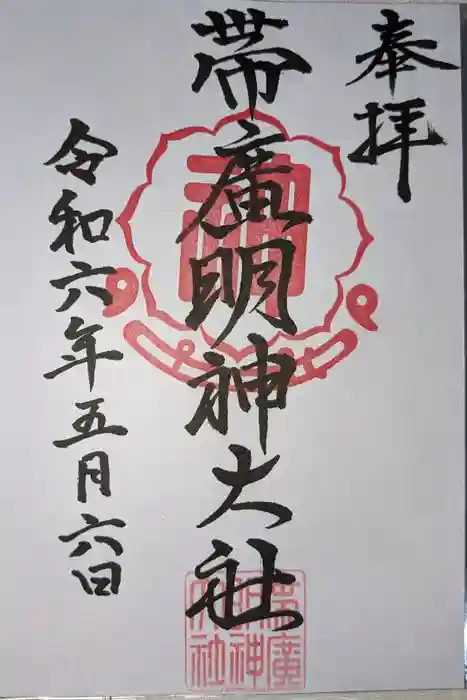 奉拝
帯廣明神大社
令和六年五月六日
帯廣
明神
大社